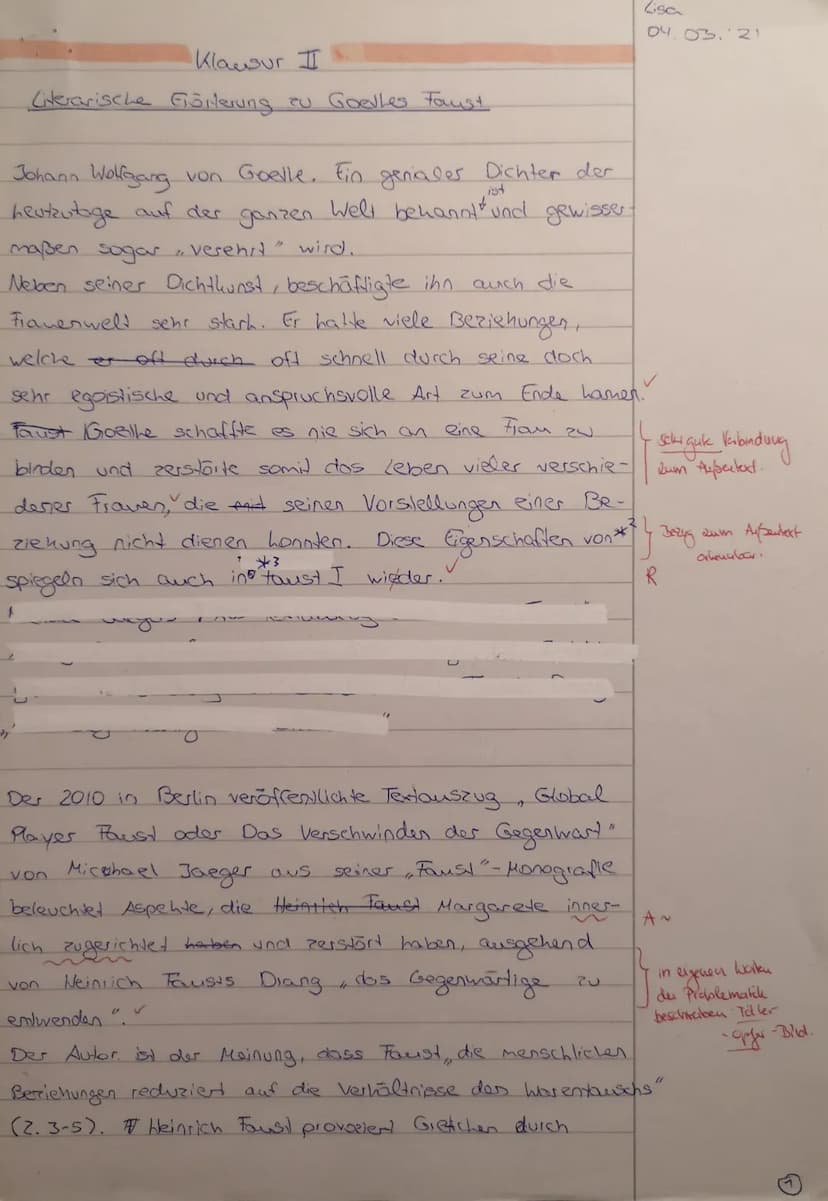 Lisa
04.03.'21
Klausur II
Literarische Erörterung zu Goethes Faust
Johann Wolfgang von Goethe. Ein geniales Dichter der
ist
heutzutage auf der ganzen Welt bekannt und gewisser-
maßen sogar „verehrt" wird.
Neben seiner Dichtkunst, beschäftigte ihn auch die
Frauenwelt sehr stark. Er hatte viele Beziehungen,
welche er oft durch oft schnell durch seine doch
sehr egoistische und anspruchsvolle Art zum Ende kamen.
Faust Goethe schaffte es nie sich an eine Frau zu
binden und zerstörte somit das Leben vieler verschie-
dener Frauen, die mit seinen Vorstellungen einer Be-
ziehung nicht dienen konnten. Diese Eigenschaften von *²
spiegeln sich auch in *3 Faust I wieder.
sehr gute Verbindung
zum Außertext.
Bezug zum Außertext
erkennbar.
R
Der 2010 in Berlin veröffentlichte Textauszug „Global
Player Faust oder Das Verschwinden der Gegenwart"
von Micehael Jaeger aus seiner „Faust"-Monografie
beleuchtet Aspekte, die Heinrich Faust Margarete inner-
lich zugerichtet haben und zerstört haben, ausgehend
von Heinrich Fausts Drang „das Gegenwärtige zu
entwenden".
A~
in eigenen Worten
die Problematik
beschrieben Täter
-Opfer-Bild.
Der Autor ist der Meinung, dass Faust „die menschlichen
Beziehungen reduziert auf die Verhältnisse des Warentauschs"
(Z. 3-5). Heinrich Faust provoziert Gretchen durch
1